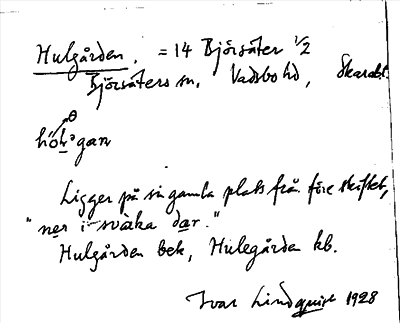 Hulgården. = 14 Björsäter 1/2
Björsäters sn, Vadsbo hd, Skarab.
Ligger på sin gamla plats från före skiftet,
"ner i svåka dar."
Hulgården bek, Hulegården kb.
Ivar Lindquist 1928